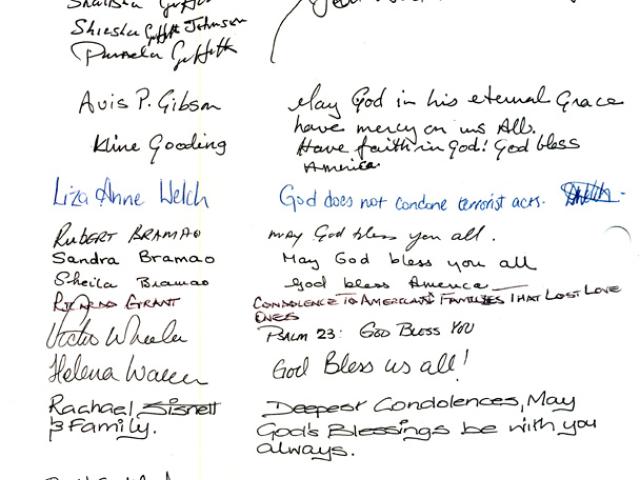 Shiesha Griffith Johnson
Pamela Griffith
Avis P. Gibson May God in his eternal Grace
have mercy on us All.
Kline Gooding Have faith in God! God bless
America
Liza Anne Welch God does not condone terrorist acts.
RUBERT BRAMAO may God bless you all.
Sandra Bramao May God bless you all
Sheila Bramao God bless America
RICARDO GRANT CONDOLENCE TO AMERICAN FAMILIES THAT LOST LOVE
ONES
Victor Wheeler PSALM 23: GOD BLESS YOU
Helena God Bless us all!
Rachael Sisnett Deepest Condolences, May
& Family. God's Blessings be with you
always.